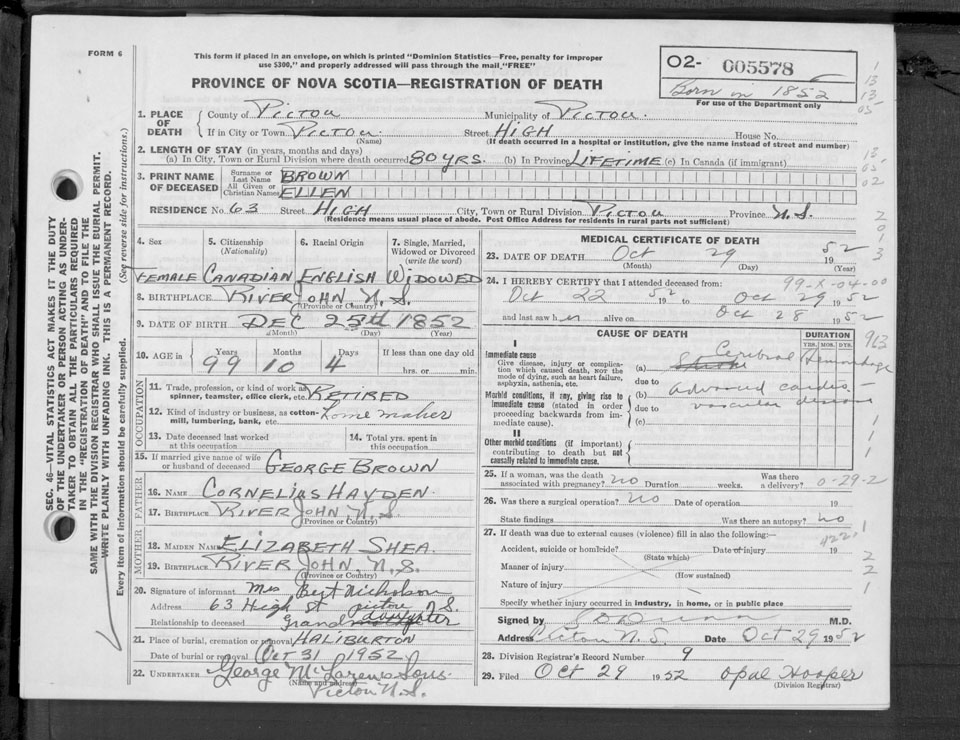 FORM 6
This form if placed in an envelope, on which is printed "Dominion Statistics—Free, penalty for improper
use $300," and properly addressed will pass through the mail, "FREE"
PROVINCE OF NOVA SCOTIA—REGISTRATION OF DEATH
O2- 005578
Born in 1852
For use of the Department only
SEC. 46—VITAL STATISTICS ACT MAKES IT THE DUTY
OF THE UNDERTAKER OR PERSON ACTING AS UNDER-
TAKER TO OBTAIN ALL THE PARTICULARS REQUIRED
IN THE "REGISTRATION OF DEATH" AND TO FILE THE
SAME WITH THE DIVISION REGISTRAR WHO SHALL ISSUE THE BURIAL PERMIT.
WRITE PLAINLY WITH UNFADING INK. THIS IS A PERMANENT RECORD.
Every item of information should be carefully supplied. (See reverse side for instructions.)
1. PLACE OF DEATH
County of PICTOU Municipality of PICTOU.
If in City or Town PICTOU. Street HIGH House No.
(Name) (If death occurred in a hospital or institution, give the name instead of street and number)
2. LENGTH OF STAY (in years, months and days)
(a) In City, Town or Rural Division where death occurred 80 YRS. (b) In Province LIFETIME (c) In Canada (if immigrant)
3. PRINT NAME OF DECEASED
Surname or Last Name BROWN
All Given or Christian Names ELLEN
RESIDENCE No. 63 Street HIGH City, Town or Rural Division PICTOU Province N.S.
(Residence means usual place of abode. Post Office Address for residents in rural parts not sufficient)
4. Sex 5. Citizenship (Nationality) 6. Racial Origin 7. Single, Married, Widowed or Divorced (write the word)
FEMALE CANADIAN ENGLISH WIDOWED
8. BIRTHPLACE RIVER JOHN N.S.
(Province or Country)
9. DATE OF BIRTH DEC 25th 1852
(Month) (Day) (Year)
10. AGE in Years Months Days If less than one day old
99 10 4 hrs. or min.
OCCUPATION
11. Trade, profession, or kind of work as spinner, teamster, office clerk, etc. RETIRED
12. Kind of industry or business, as cotton-mill, lumbering, bank, etc. Home maher
13. Date deceased last worked at this occupation
14. Total yrs. spent in this occupation
15. If married give name of wife or husband of deceased GEORGE BROWN
FATHER
16. NAME CORNELIUS HAYDEN.
17. BIRTHPLACE RIVER JOHN N.S.
(Province or Country)
MOTHER
18. MAIDEN NAME ELIZABETH SHEA.
19. BIRTHPLACE RIVER JOHN, N.S.
(Province or Country)
20. Signature of informant Mrs Bert Nicholson
Address 63 High St pictou N.S.
Relationship to deceased Grand daughter
21. Place of burial, cremation or removal HALIBURTON
Date of burial or removal Oct 31 1952
22. UNDERTAKER George McLaren & Sons.
(Name and address)
Pictou N.S.
MEDICAL CERTIFICATE OF DEATH
23. DATE OF DEATH Oct 29 1952
(Month) (Day) (Year)
24. I HEREBY CERTIFY that I attended deceased from: 99-X-04-00
Oct 22 1952 to Oct 29 1952
and last saw her alive on Oct 28 1952
CAUSE OF DEATH
DURATION
YRS. MOS. DYS.
963
I
Immediate cause
Give disease, injury or complication which caused death, NOT the mode of dying, such as heart failure, asphyxia, asthenia, etc.
(a) Stroke Cerebral Hemorrhage
due to
Morbid conditions, if any, giving rise to immediate cause (stated in order proceeding backwards from immediate cause).
(b) advanced cardio-
due to vascular disease
(c)
II
Other morbid conditions (if important) contributing to death but not causally related to immediate cause.
25. If a woman, was the death associated with pregnancy? no Duration weeks. Was there a delivery? 0-29-2
26. Was there a surgical operation? no Date of operation 19
State findings Was there an autopsy? no
27. If death was due to external causes (violence) fill in also the following:—
Accident, suicide or homicide? Date of injury 19
(State which)
Manner of injury
(How sustained)
Nature of injury
Specify whether injury occurred in industry, in home, or in public place
Signed by M.D.
Address Pictou N.S. Date Oct 29 1952
28. Division Registrar's Record Number 9
29. Filed Oct 29 1952 Opal Hooper
(Division Registrar)